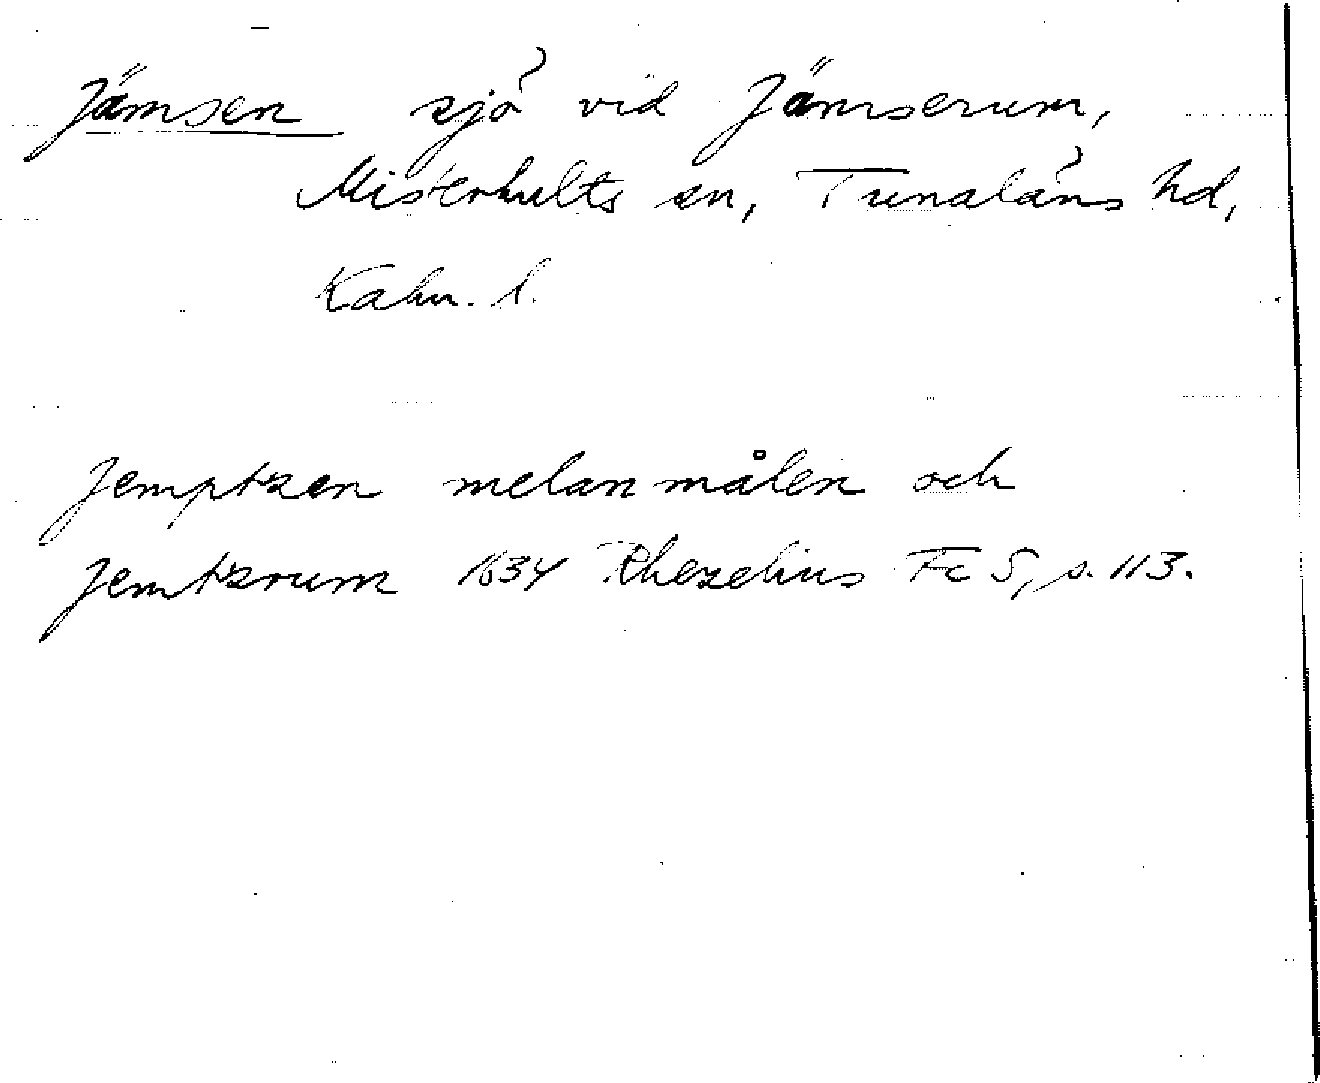 Jämsen sjö vid Jämserum,
Misterhults sn, Tunaläns hd,
Kalm. l.
Jemptzen melan målen och
Jemtzrum 1634 Rhezelius Fc 5, s. 113.